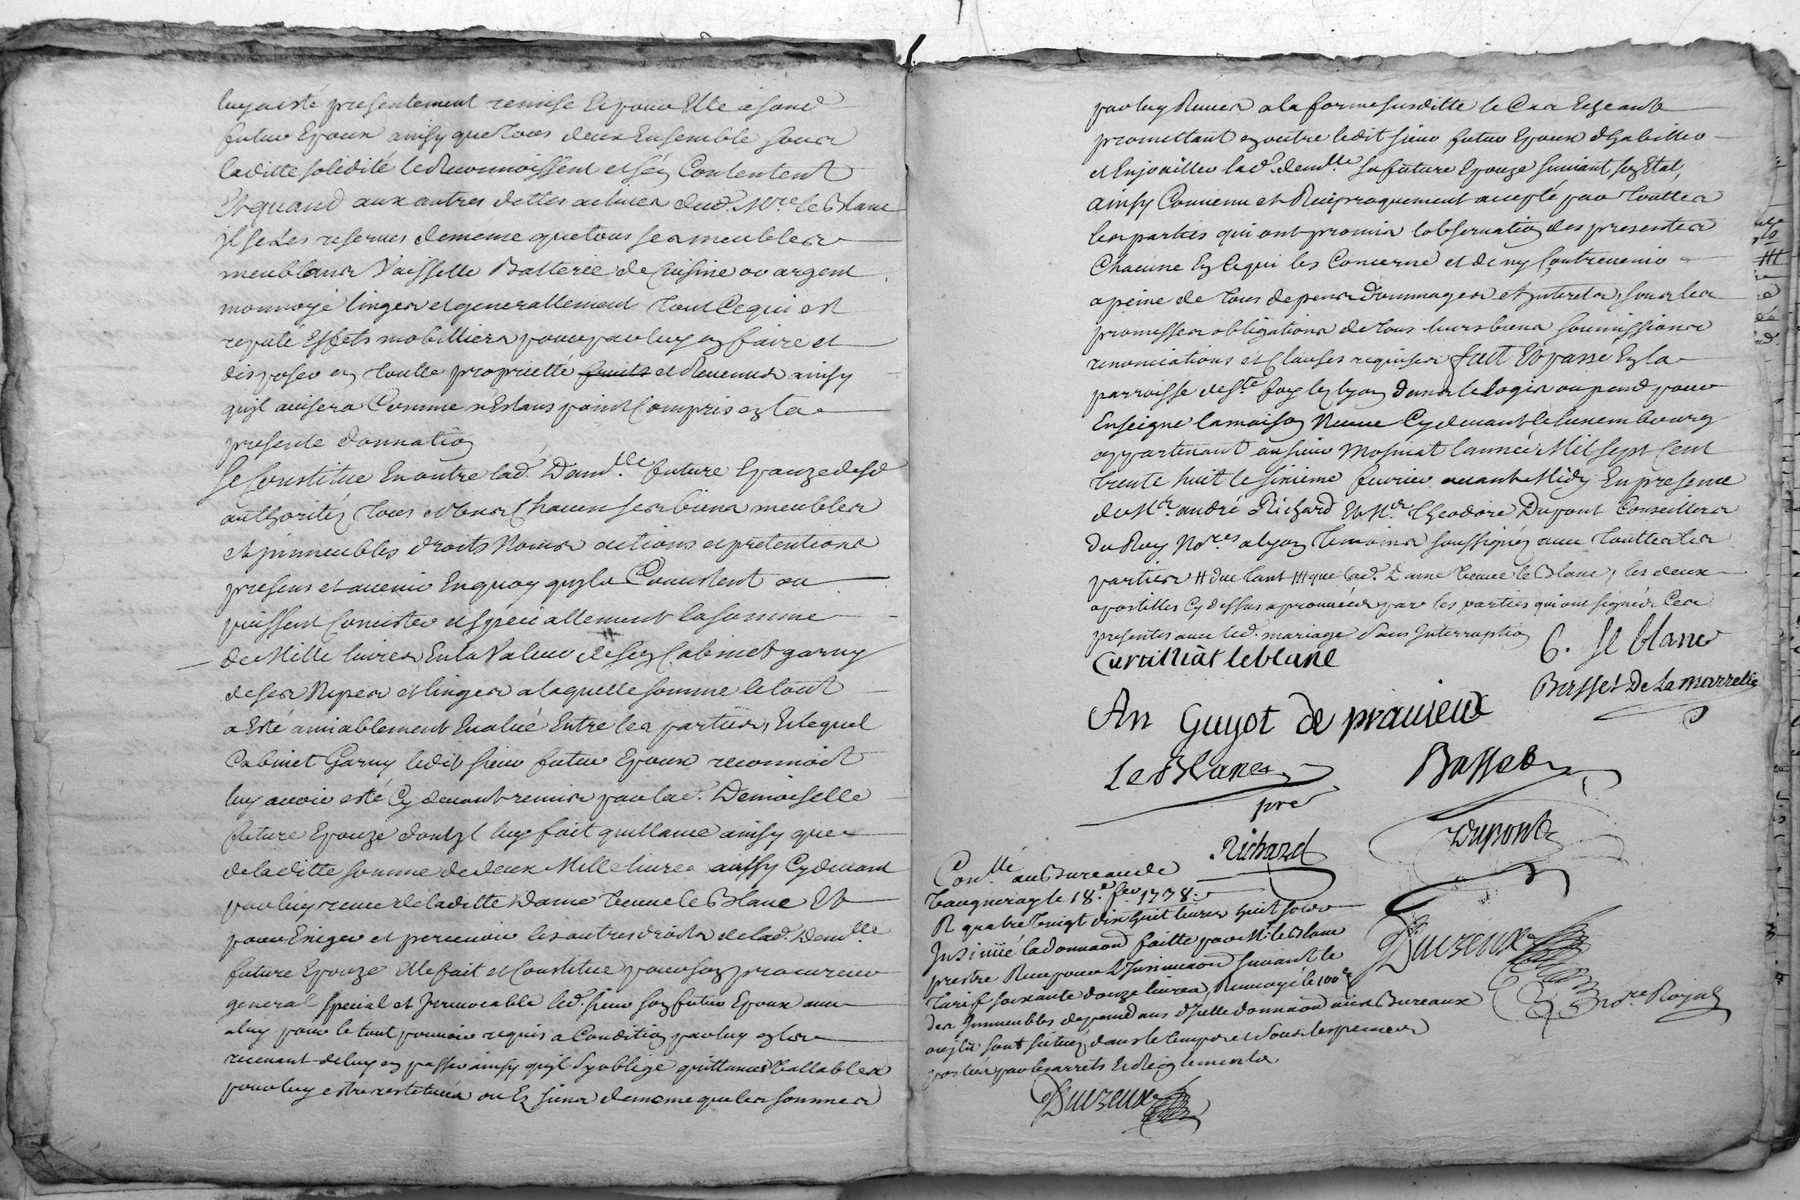 luy a esté presentement remise Et pour Elle a sond.
futur Epoux ainsy que tous deux Ensemble sous
laditte solidité le Reconnoissent et s'en Contentent
Et quand aux autres dettes actives dud. Mre. le Blanc
il se Les reserve de meme que tous ses meubles
meublans Vaisselle Batterie de Cuisine or argent
monnoyé linges et generallement tout Ce qui est
reputé Effets mobilliers pour par luy en faire et
disposer en toutte proprieté fruits et Revenus ainsy
qu'il avisera Comme n'Estans point Compris en la
presente donnation
Se Constitue En outre lad. Demlle. future Epouze desd
authorités tous et Uns Chacun ses biens meubles
et immeubles droits Noms actions et pretentions
presens et avenir En quoy qu'ils Concistent ou
puissent Concister et specialement la somme
de Mille livres En la Valeur de son Cabinet garny
de ses Nipes et linges a laquelle somme le tout
a Esté amiablement Evalué Entre les parties, Et lequel
Cabinet Garny ledit sieur futur Epoux reconnoit
luy avoir esté Cy devant remis par lad. Demoiselle
future Epouze dont il luy fait quittance ainsy que
de laditte somme de deux Mille livres aussy Cy devant
par luy receue de laditte Dame Veuve le Blanc Et
pour Exiger et percevoir les autres droits de lad. Demlle
future Epouze Elle fait et Constitue pour son procureur
general special et Irrevocable led. sieur son futur Epoux avec
a luy pour le tout pouvoir requis a Condition par luy en les
recevant de luy en passer ainsy qu'il S'y oblige quittances Vallables
pour luy estre restituées ou Es siens de meme que les sommes
par luy Receues a la forme susditte le Cas Echeant
promettant en outre ledit sieur futur Epoux d'habiller
et Enjoailler lad. demlle. sa future Epouze suivant son Etat,
ainsy Convenu et Reciproquement accepté par touttes
les parties qui ont promis l'observation des presentes
Chacune En Ce qui les Concerne et de n'y Contrevenir
a peine de tous depens dommages et Interets, sous les
promesses obligations de tous leurs biens soumissions
renonciations et Clauses requises fait Et passé En la
parroisse de Ste. foy les Lyon dans le logis ou pend pour
Enseigne la maison Cy devant le Luxembourg
appartenant au sieur L'année Mil sept Cent
trente huit le sixieme fevrier avant Midy En presence
de Mr. andré Richard Et Mr. theodore Dupont Conseillers
du Roy Nores. a Lyon temoins soussignez avec touttes les
parties # due tant ### que lad. Dame Veuve le Blanc, les deux
apostilles Cy dessus aprouvées par les parties qui ont signés Ces
presentes avec led. mariage sans Interruption
Curailliat leblanc
C. le blanc
Basset De La marrelle
An Guyot de pravieux
Le Blanc
pre
Basset
Richard
Dupont
Conllé. au Bureau de
Vaugneray le 18e. fer. 1738.
R quatre vingt dix huit livres huit sols
Insinüé la donnaon faitte par Mr. le Blanc
prestre Receu pour L'Insinuaon suivant le
tarif soixante douze livres, Renvoyé le 100e.
des Immeubles dependans d'Icelle donnaon aux Bureaux
ou ils sont situez dans le temps et sous les peines
portées par les arrets Et Reglements
Durzeux
Durzeux
Nore. Royal